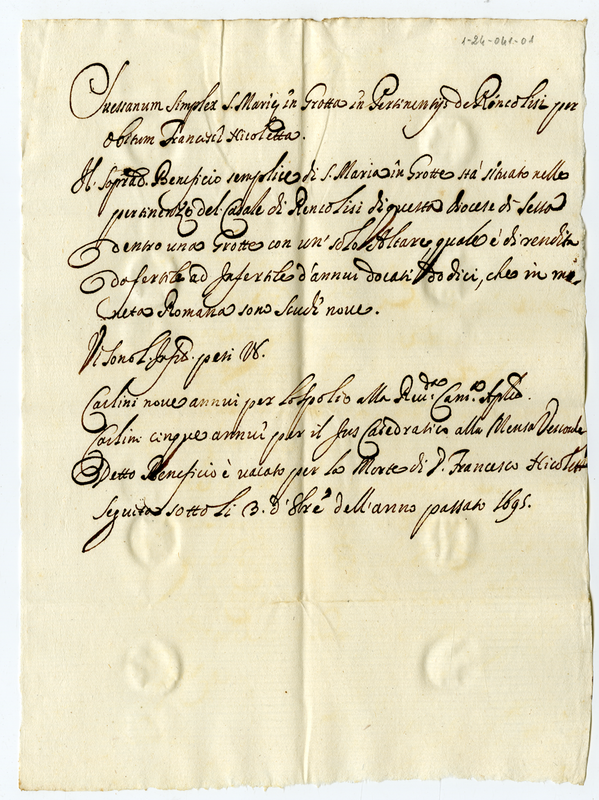 1-24-041-01
Suessanum Simplex S. Marię in Grotta in Pertinentijs de Rencolisi per
obitum Francisci Nicoletta.
Il soprad. Beneficio semplice di S. Maria in Grotte stà situato nelle
pertinenze del Casale di Rencolisi di questa diocese di Sessa
dentro una Grotte con un' solo Altare, quale è di rendita
da fertile ad Infertile d'annui docati dodici, che in mo-
neta Romana sono scudi nove.
Vi sono l'infr. pesi V.
Carlini nove annui per lo spolio alla Rev. Cam. Aplica.
Carlini cinque annui per il Jus Catedratico alla Mensa Vescovale
Detto Beneficio è vacato per la Morte di D. Francesco Nicoletta
seguita sotto li 3. d' 8bre dell' anno passato 1695.